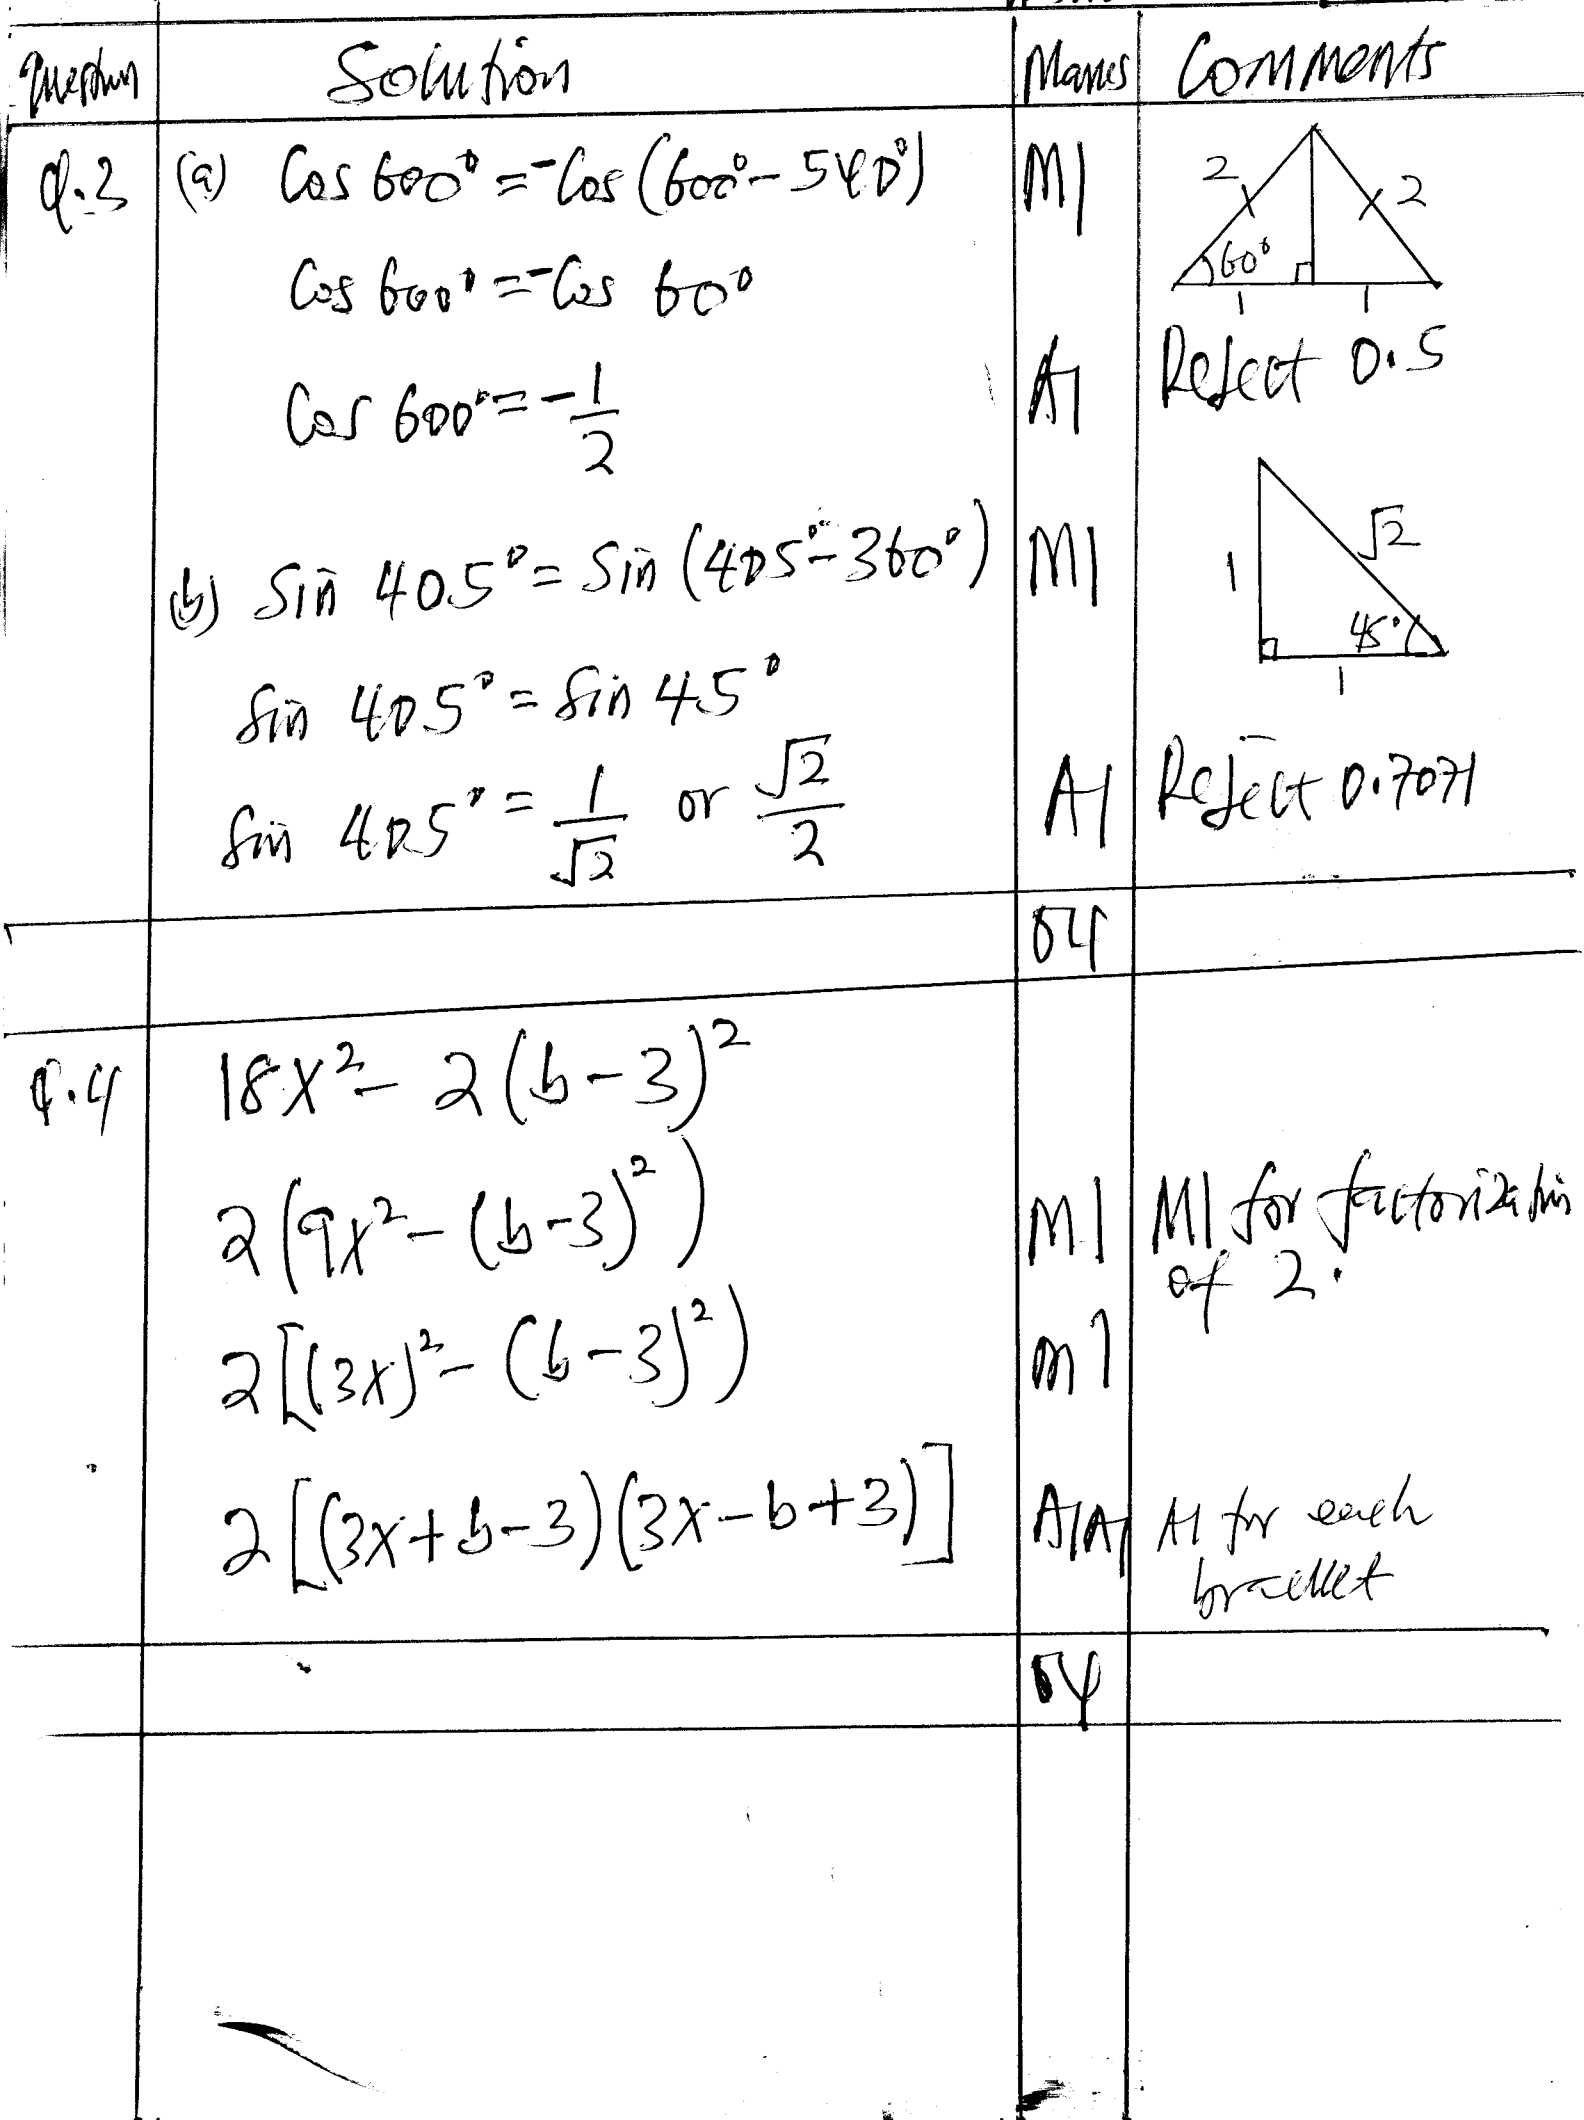 Question Solution Marks Comments
Q.3 (a) Cos 600° = -Cos (600° - 540°) M1
2 2
60°
1 1
Cos 600° = -Cos 60°
Cos 600° = -1/2 A1 Reject 0.5
(b) Sin 405° = Sin (405° - 360°) M1
1 √2
45°
1
Sin 405° = Sin 45°
Sin 405° = 1/√2 or √2/2 A1 Reject 0.7071
04
Q.4 18x² - 2(b-3)²
2(9x² - (b-3)²) M1 M1 for factorization
of 2.
2[(3x)² - (b-3)²) m1
2[(3x+b-3)(3x-b+3)] A1A1 A1 for each
bracket
04